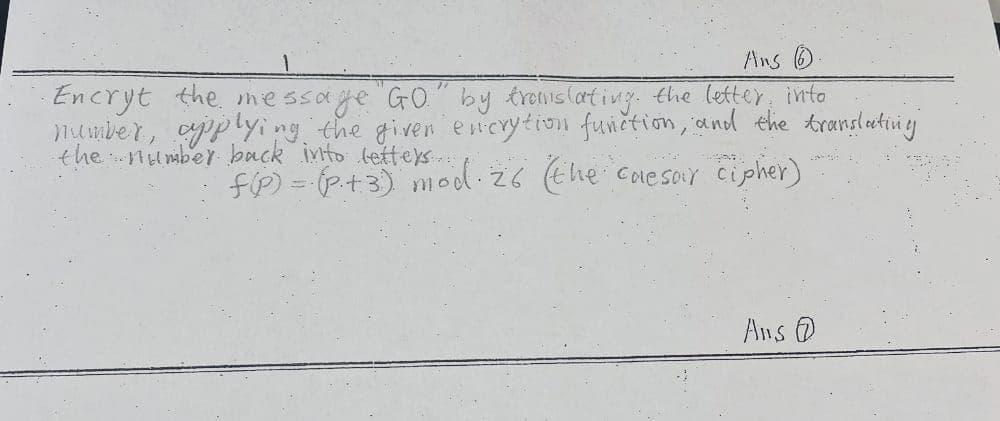 1
Ans ⑥
Encryt the message "GO" by translating the letter into
number, applying the given encrytion function, and the translating
the number back into letters.
f(P) = (P+3) mod 26 (the caesar cipher)
Ans ⑦